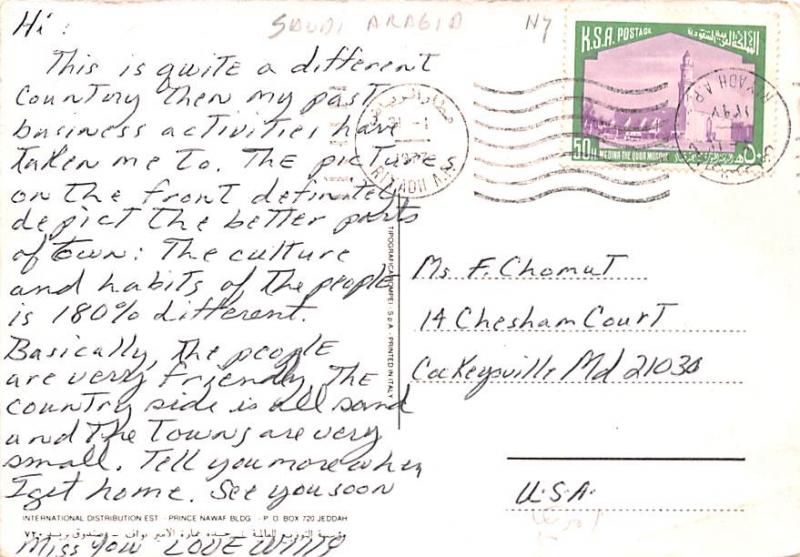 Hi:
SAUDI ARABIA
NY
K.S.A. POSTAGE
المملكة العربية السعودية
50H MEDINA-THE QUBA MOSQUE
٥٠
RIYADH A.P.
١٣٩٧
RIYADH A.P.
This is quite a different
country then my past
business activities have
taken me to. The pictures
on the front definitely
depict the better parts
of town: The culture
and habits of the people
is 180% different.
Basically, the people
are very friendly. The
country side is all sand
and the towns are very
small. Tell you more when
I get home. See you soon
Miss you LOVE Willy
TIPOGRAFICA POMPEI - S.p.A. - PRINTED IN ITALY
Ms F. Chomat
14 Chesham Court
Cockeysville Md 21030
U.S.A.
INTERNATIONAL DISTRIBUTION EST - PRINCE NAWAF BLDG - P.O. BOX 720 JEDDAH